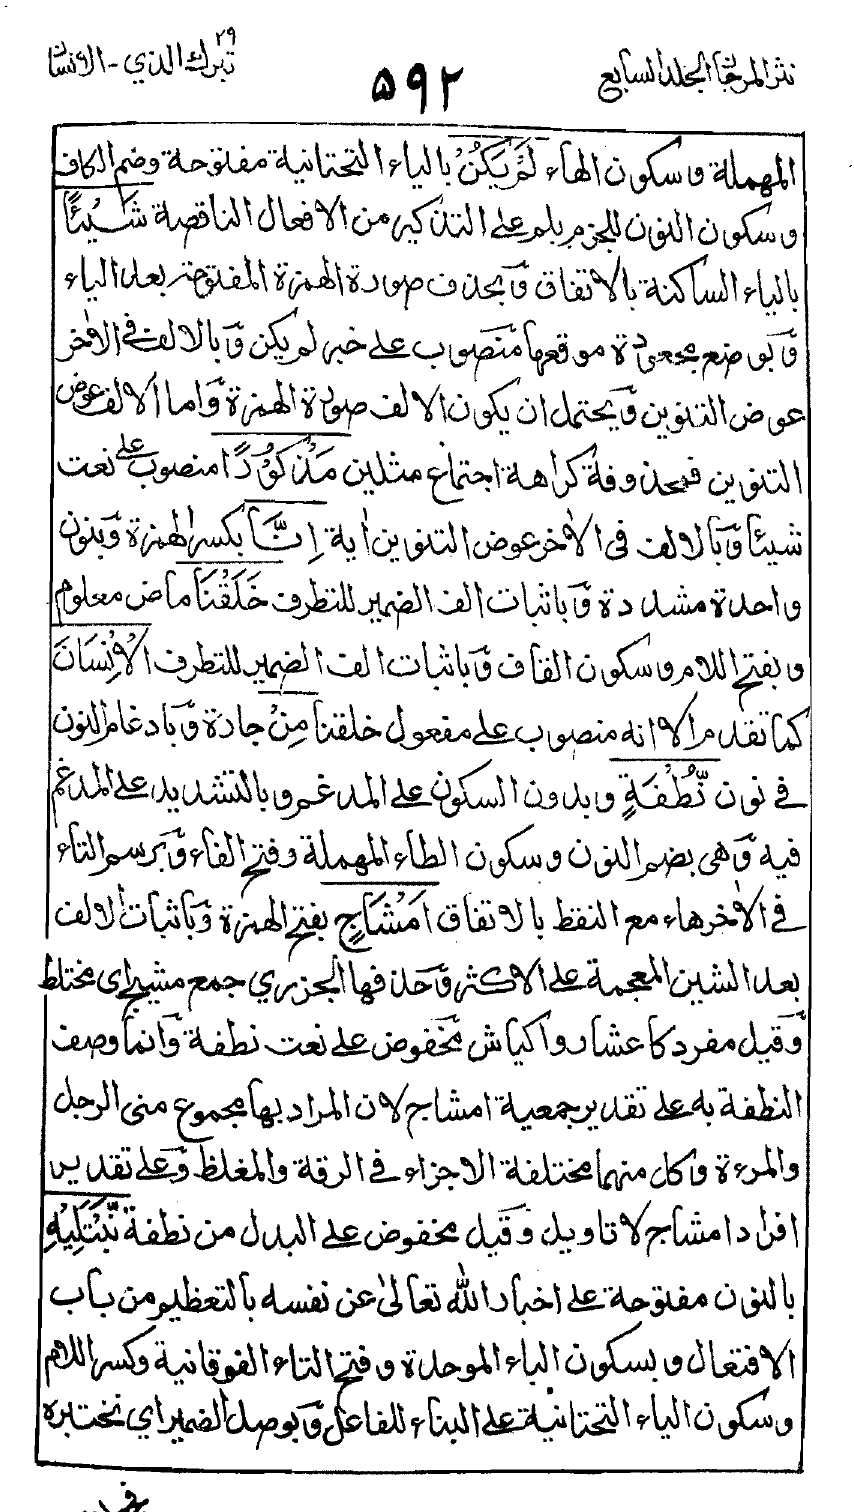 نثر المرجان الجلد السابع
۵۹۲
تبرك الذي ۲۹ - الانسان
المهملة وسكون الهاء لَمْ يَكُنْ بالياء التحتانية مفتوحة وضم الكاف
وسكون النون للجزم بلم على التذكير من الافعال الناقصة شَيْئًا
بالياء الساكنة بالاتفاق وَبحذف صورة الهمزة المفتوحة بعد الياء
وَبوضع مجعودة موقعها منصوب على خبر لم يكن وَبالالف فى الاٰخر
عوض التنوين وَيحتمل ان يكون الالف صورة الهمزة وَاما الالف عوض
التنوين فمحذوفة كراهة اجتماع مثلين مَذْكُوْرًا منصوب على نعت
شيئا وَبالالف فى الاٰخر عوض التنوين اٰية اِنَّا بكسر الهمزة وَبنون
واحدة مشددة وَباثبات الف الضمير للتطرف خَلَقْنَا ماض معلوم
وبفتح اللام وسكون القاف وَباثبات الف الضمير للتطرف الْاِنْسَانَ
كما تقدم الا انه منصوب على مفعول خلقنا مِنْ جادة وَبادغام النون
فى نون نُّطْفَةٍ وبدون السكون على المدغم وبالتشديد على المدغم
فيه وَهى بضم النون وسكون الطاء المهملة وفتح الفاء وَبرسم التاء
فى الاٰخر هاء مع النقط بالاتفاق اَمْشَاجٍ بفتح الهمزة وَباثبات الالف
بعد الشين المعجمة على الاكثر وَحذفها الجزري جمع مشيج اى مختلط
وَقيل مفرد كاعشار واكياش مخفوض على نعت نطفة وَانما وصف
النطفة به على تقدير جمعية امشاج لان المراد بها مجموع منى الرجل
والمرءة وَكل منهما مختلفة الاجزاء فى الرقة والمغلظ وَعلى تقدير
افراد امشاج لا تاويل وَقيل مخفوض على البدل من نطفة نَّبْتَلِيْهِ
بالنون مفتوحة على اخبار الله تعالىٰ عن نفسه بالتعظيم من باب
الافتعال وبسكون الباء الموحدة وفتح التاء الفوقانية وكسر اللام
وسكون الياء التحتانية على البناء للفاعل وَبوصل الضمير اي نختبره